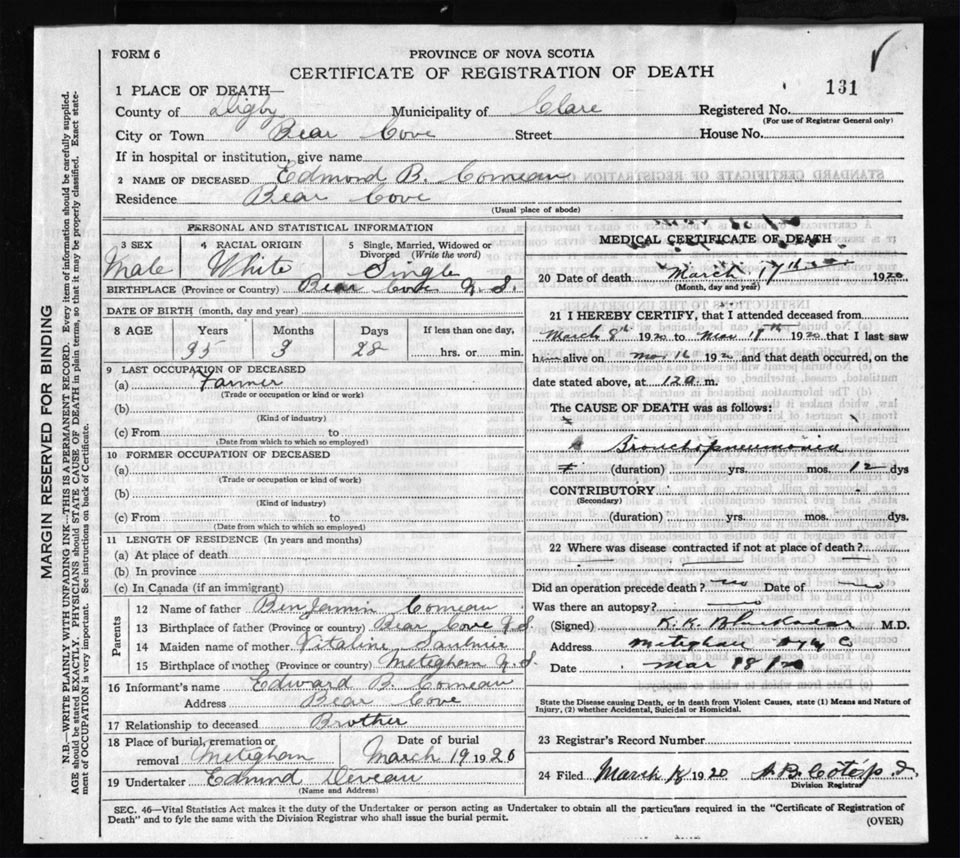 FORM 6
PROVINCE OF NOVA SCOTIA
CERTIFICATE OF REGISTRATION OF DEATH
131
1 PLACE OF DEATH—
County of Digby Municipality of Clare Registered No.
(For use of Registrar General only)
City or Town Bear Cove Street House No.
If in hospital or institution, give name
2 NAME OF DECEASED Edmond B. Comeau
Residence Bear Cove
(Usual place of abode)
PERSONAL AND STATISTICAL INFORMATION
3 SEX 4 RACIAL ORIGIN 5 Single, Married, Widowed or Divorced (Write the word)
Male White Single
BIRTHPLACE (Province or Country) Bear Cove N.S.
DATE OF BIRTH (month, day and year)
8 AGE Years Months Days If less than one day,
35 3 28 hrs. or min.
9 LAST OCCUPATION OF DECEASED
(a) Farmer
(Trade or occupation or kind or work)
(b)
(Kind of industry)
(c) From to
(Date from which to which so employed)
10 FORMER OCCUPATION OF DECEASED
(a)
(Trade or occupation or kind of work)
(b)
(Kind of industry)
(c) From to
(Date from which to which so employed)
11 LENGTH OF RESIDENCE (In years and months)
(a) At place of death
(b) In province
(c) In Canada (if an immigrant)
Parents
12 Name of father Benjamin Comeau
13 Birthplace of father (Province or country) Bear Cove N.S.
14 Maiden name of mother Vitaline Saulnier
15 Birthplace of mother (Province or country) Meteghan N.S.
16 Informant's name Edward B. Comeau
Address Bear Cove
17 Relationship to deceased Brother
18 Place of burial, cremation or removal Meteghan Date of burial March 19 1920
19 Undertaker Edmund Deveau
(Name and Address)
MEDICAL CERTIFICATE OF DEATH
20 Date of death March 17th 1920
(Month, day and year)
21 I HEREBY CERTIFY, that I attended deceased from
March 8th 1920 to Mar 1920 that I last saw
him alive on Mar 16 192 and that death occurred, on the
date stated above, at 12 a. m.
The CAUSE OF DEATH was as follows:
Bronchopneumonia
(duration) yrs. mos. 12 dys
CONTRIBUTORY
(Secondary)
(duration) yrs. mos. dys.
22 Where was disease contracted if not at place of death?
Did an operation precede death? no Date of no
Was there an autopsy? no
(Signed) M.D.
Address Meteghan
Date Mar 18
State the Disease causing Death, or in death from Violent Causes, state (1) Means and Nature of Injury, (2) whether Accidental, Suicidal or Homicidal.
23 Registrar's Record Number
24 Filed March 18 1920
Division Registrar
SEC. 46—Vital Statistics Act makes it the duty of the Undertaker or person acting as Undertaker to obtain all the particulars required in the "Certificate of Registration of
Death" and to fyle the same with the Division Registrar who shall issue the burial permit. (OVER)
MARGIN RESERVED FOR BINDING
N.B.—WRITE PLAINLY WITH UNFADING INK—THIS IS A PERMANENT RECORD. Every item of information should be carefully supplied.
AGE should be stated EXACTLY. PHYSICIANS should STATE CAUSE OF DEATH in plain terms, so that it may be properly classified. Exact state-
ment of OCCUPATION is very important. See instructions on back of Certificate.